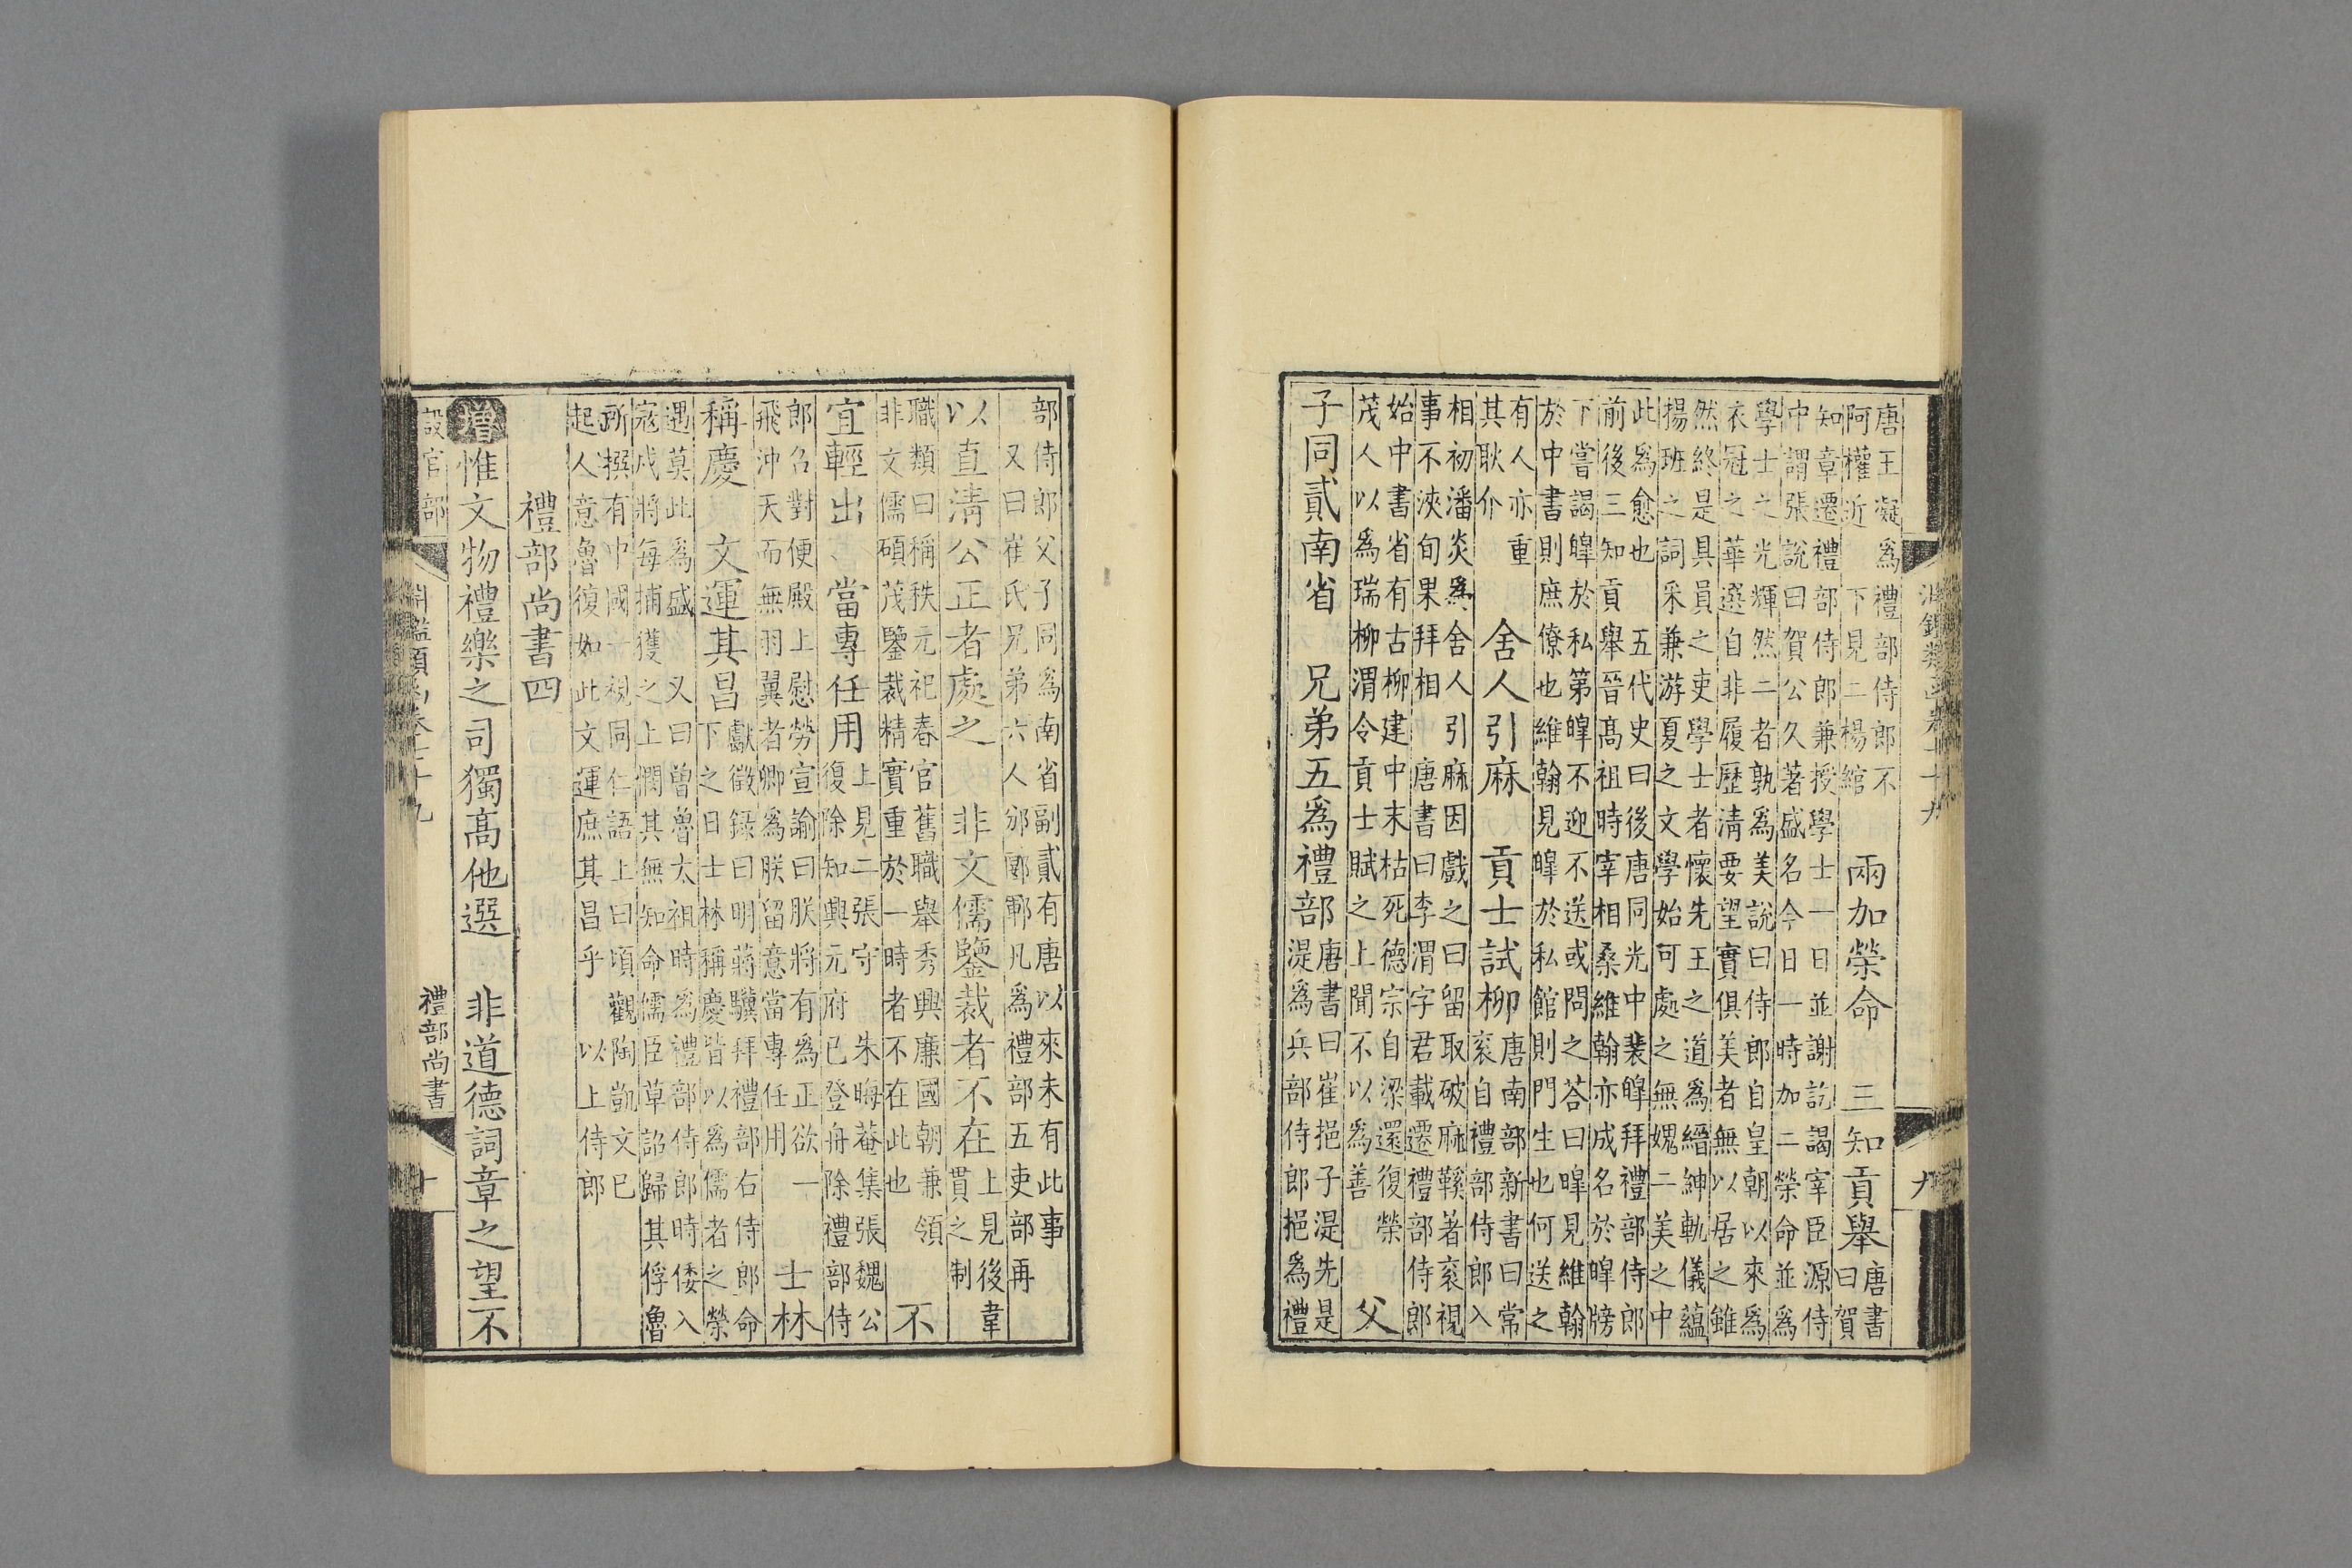 淵鑑類函卷七十九
九
唐王凝爲禮部侍郎不
阿權近 下見二楊綰
兩加榮命 三知貢舉
唐書
曰賀
知章遷禮部侍郎兼授學士一日並謝訖謁宰臣源侍
中謂張說曰賀公久著盛名今日一時加二榮命並爲
學士之光輝然二者孰爲美說曰侍郎自皇朝以來爲
衣冠之華選自非履歷清要望實俱美者無以居之雖
然終是具員之吏學士者懷先王之道爲縉紳軌儀蘊
揚班之詞采兼游夏之文學始可處之無媿二美之中
此爲愈也 五代史曰後唐同光中裴皞拜禮部侍郎
前後三知貢舉晉高祖時宰相桑維翰亦成名於皞牓
下嘗謁皞於私第皞不迎不送或問之荅曰皞見維翰
於中書則庶僚也維翰見皞於私館則門生也何送之
有人亦重
其耿介
舍人引麻 貢士試柳
唐南部新書曰常
袞自禮部侍郎入
相初潘炎爲舍人引麻因戲之曰留取破麻鞵著袞視
事不浹旬果拜相 唐書曰李渭字君載遷禮部侍郎
始中書省有古柳建中末枯死德宗自梁還復榮
茂人以爲瑞柳渭令貢士賦之上聞不以爲善
父
子同貳南省 兄弟五爲禮部
唐書曰崔挹子湜先是
湜爲兵部侍郎挹爲禮
部侍郎父子同爲南省副貳有唐以來未有此事
又曰崔氏兄弟六人邠郾鄆凡爲禮部五吏部再
以直清公正者處之 非文儒鑒裁者不在
上見後韋
貫之制
職類曰稱秩元祀春官舊職舉秀興廉國朝兼領
非文儒碩茂鑒裁精實重於一時者不在此也
不
宜輕出 當專任用
上見二張守 朱晦菴集張魏公
復除知興元府已登舟除禮部侍
郎召對便殿上慰勞宣諭曰朕將有爲正欲一
飛沖天而無羽翼者卿爲朕留意當專任用
士林
稱慶 文運其昌
獻徵錄曰明蔣驥拜禮部右侍郎命
下之日士林稱慶皆以爲儒者之榮
遇莫此爲盛 又曰曾魯太祖時爲禮部侍郎時倭入
寇戍將每捕獲之上憫其無知命儒臣草詔歸其俘魯
所撰有中國一視同仁語上曰頃觀陶凱文已
起人意魯復如此文運庶其昌乎 以上侍郎
禮部尚書四
增惟文物禮樂之司獨高他選 非道德詞章之望不
設官部
淵鑑類函卷七十九
禮部尚書
十